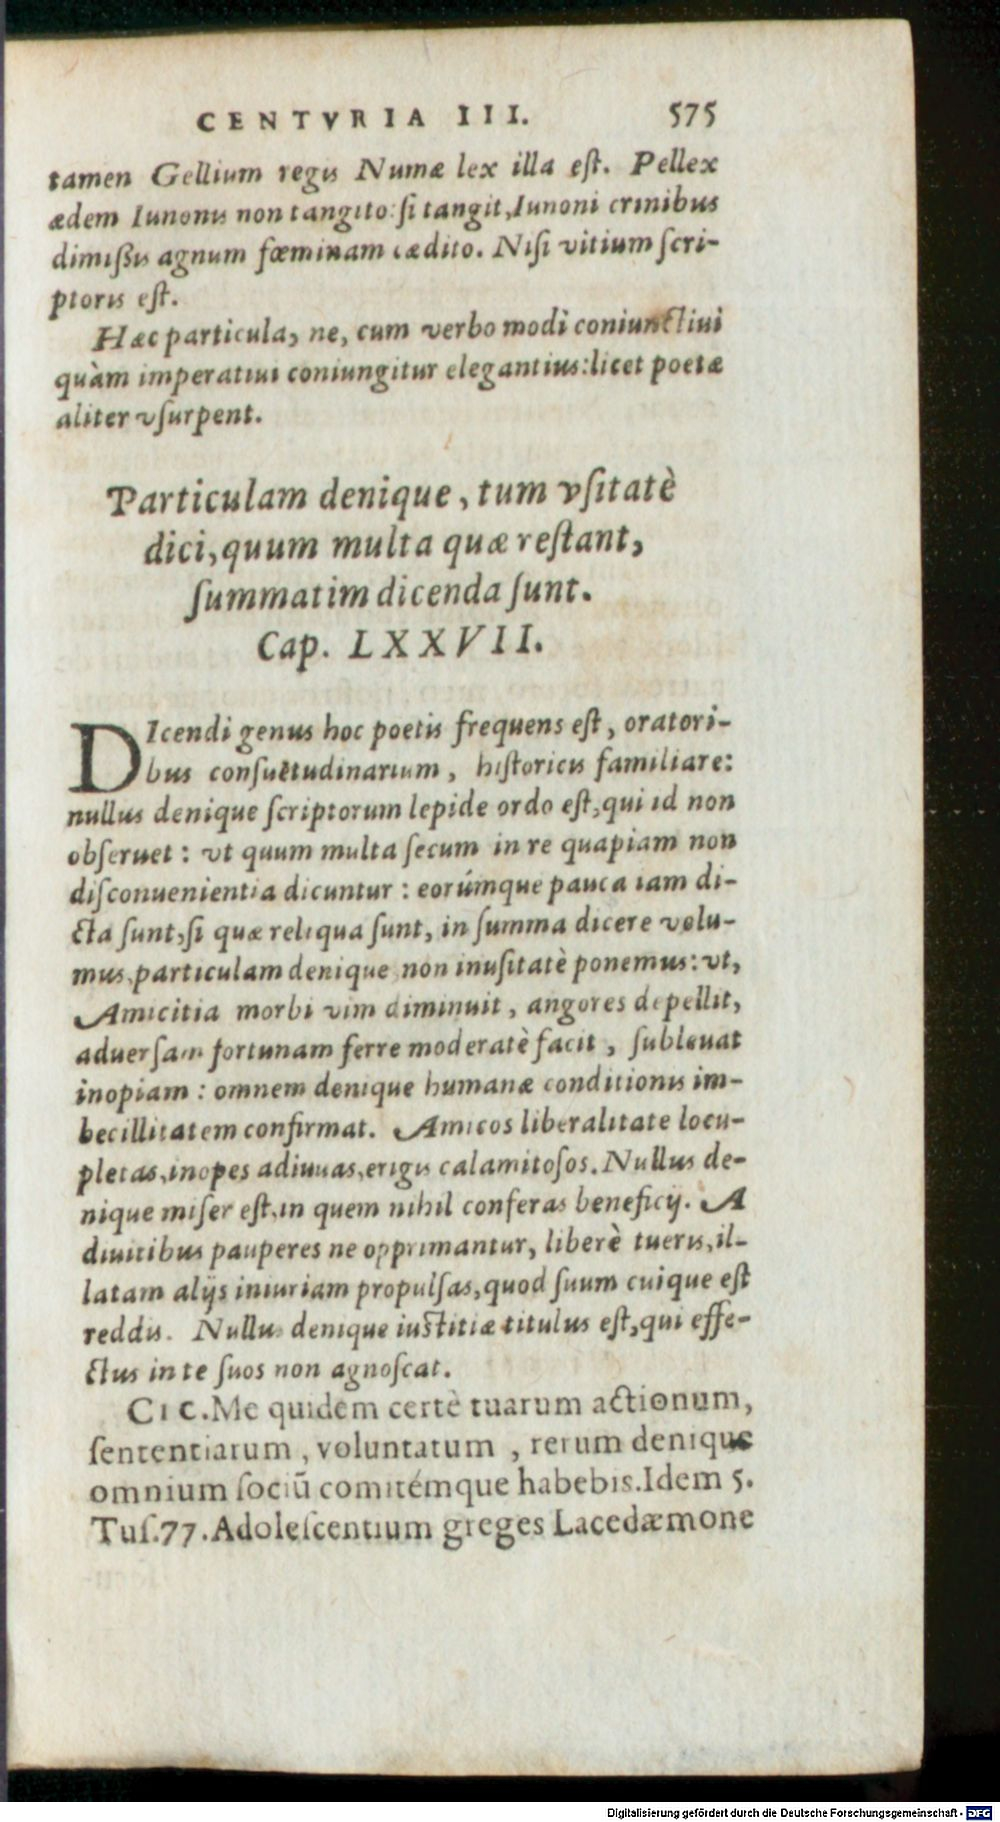 CENTVRIA III. 575
tamen Gellium regis Numæ lex illa eſt. Pellex
ædem Iunonis non tangito: ſi tangit, Iunoni crinibus
dimißis agnum fœminam cædito. Niſi vitium ſcri-
ptoris eſt.
Hæc particula, ne, cum verbo modi coniunctiui
quàm imperatiui coniungitur elegantius: licet poetæ
aliter vſurpent.
Particulam denique, tum vſitatè
dici, quum multa quæ reſtant,
ſummatim dicenda ſunt.
Cap. LXXVII.
DIcendi genus hoc poetis frequens eſt, oratori-
bus conſuetudinarium, hiſtoricis familiare:
nullus denique ſcriptorum lepide ordo eſt, qui id non
obſeruet: vt quum multa ſecum in re quapiam non
diſconuenientia dicuntur: eorúmque pauca iam di-
cta ſunt, ſi quæ reliqua ſunt, in ſumma dicere volu-
mus, particulam denique non inuſitatè ponemus: vt,
Amicitia morbi vim diminuit, angores depellit,
aduerſam fortunam ferre moderatè facit, ſubleuat
inopiam: omnem denique humanæ conditionis im-
becillitatem confirmat. Amicos liberalitate locu-
pletas, inopes adiuuas, erigis calamitoſos. Nullus de-
nique miſer eſt, in quem nihil conferas beneficij. A
diuitibus pauperes ne opprimantur, liberè tueris, il-
latam alijs iniuriam propulſas, quod ſuum cuique eſt
reddis. Nullus denique iuſtitiæ titulus eſt, qui effe-
ctus in te ſuos non agnoſcat.
CIC. Me quidem certè tuarum actionum,
ſententiarum, voluntatum, rerum denique
omnium ſociũ comitémque habebis. Idem 5.
Tuſ. 77. Adoleſcentium greges Lacedæmone
Digitalisierung gefördert durch die Deutsche Forschungsgemeinschaft - DFG